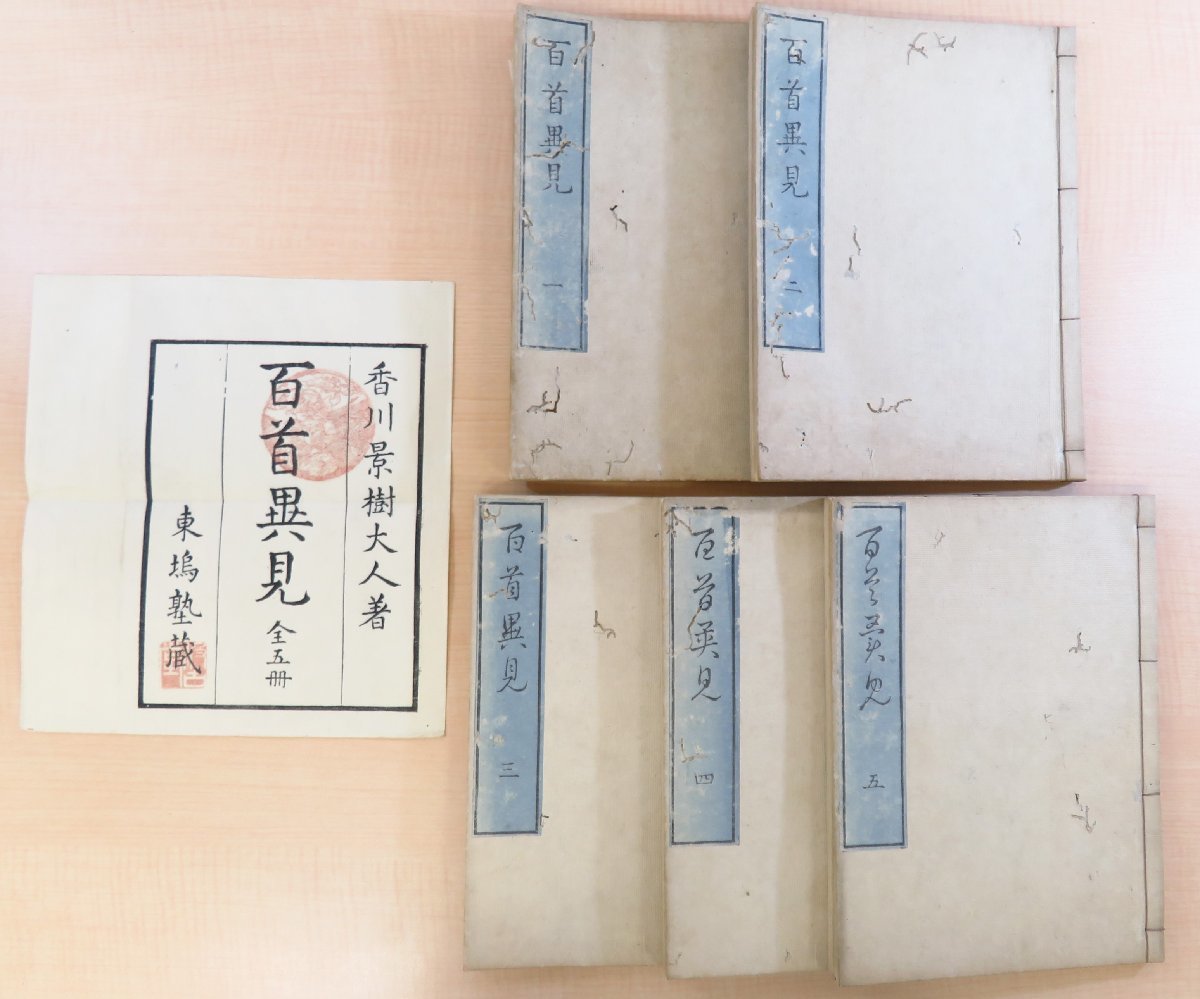 香川景樹大人著
百首異見 全五冊
東塢塾蔵
百首異見 一
百首異見 二
百首異見 三
百首異見 四
百首異見 五